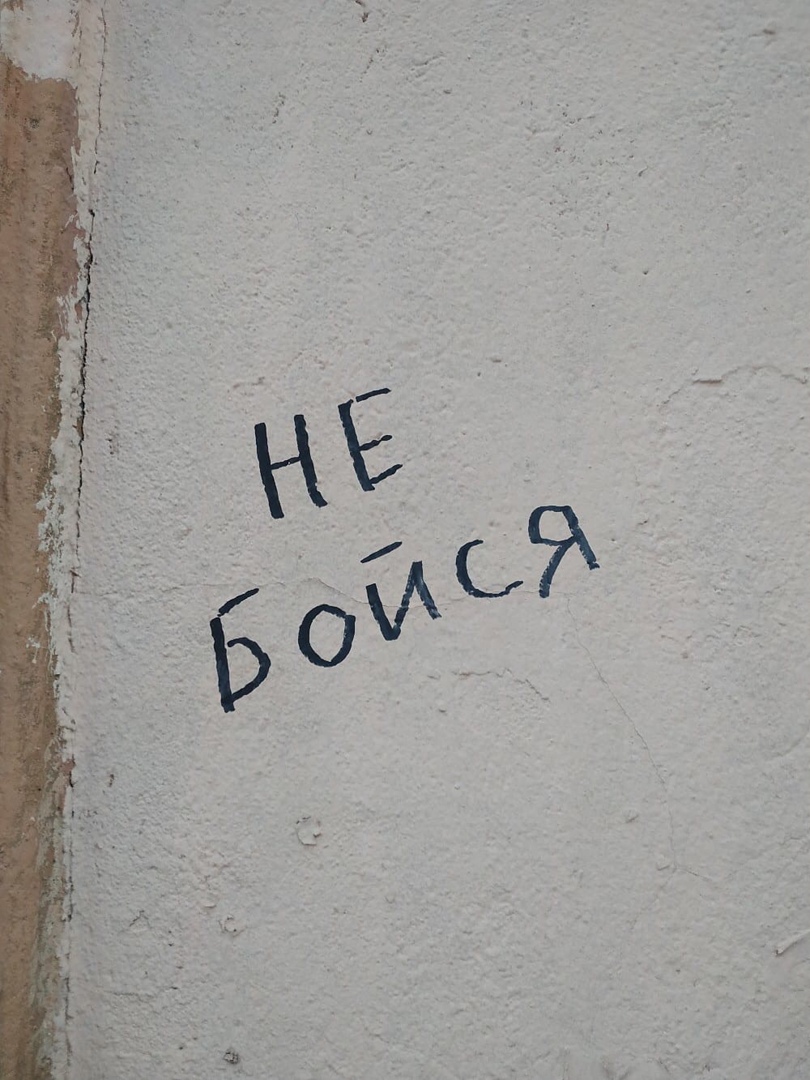 НЕ
БОЙСЯ